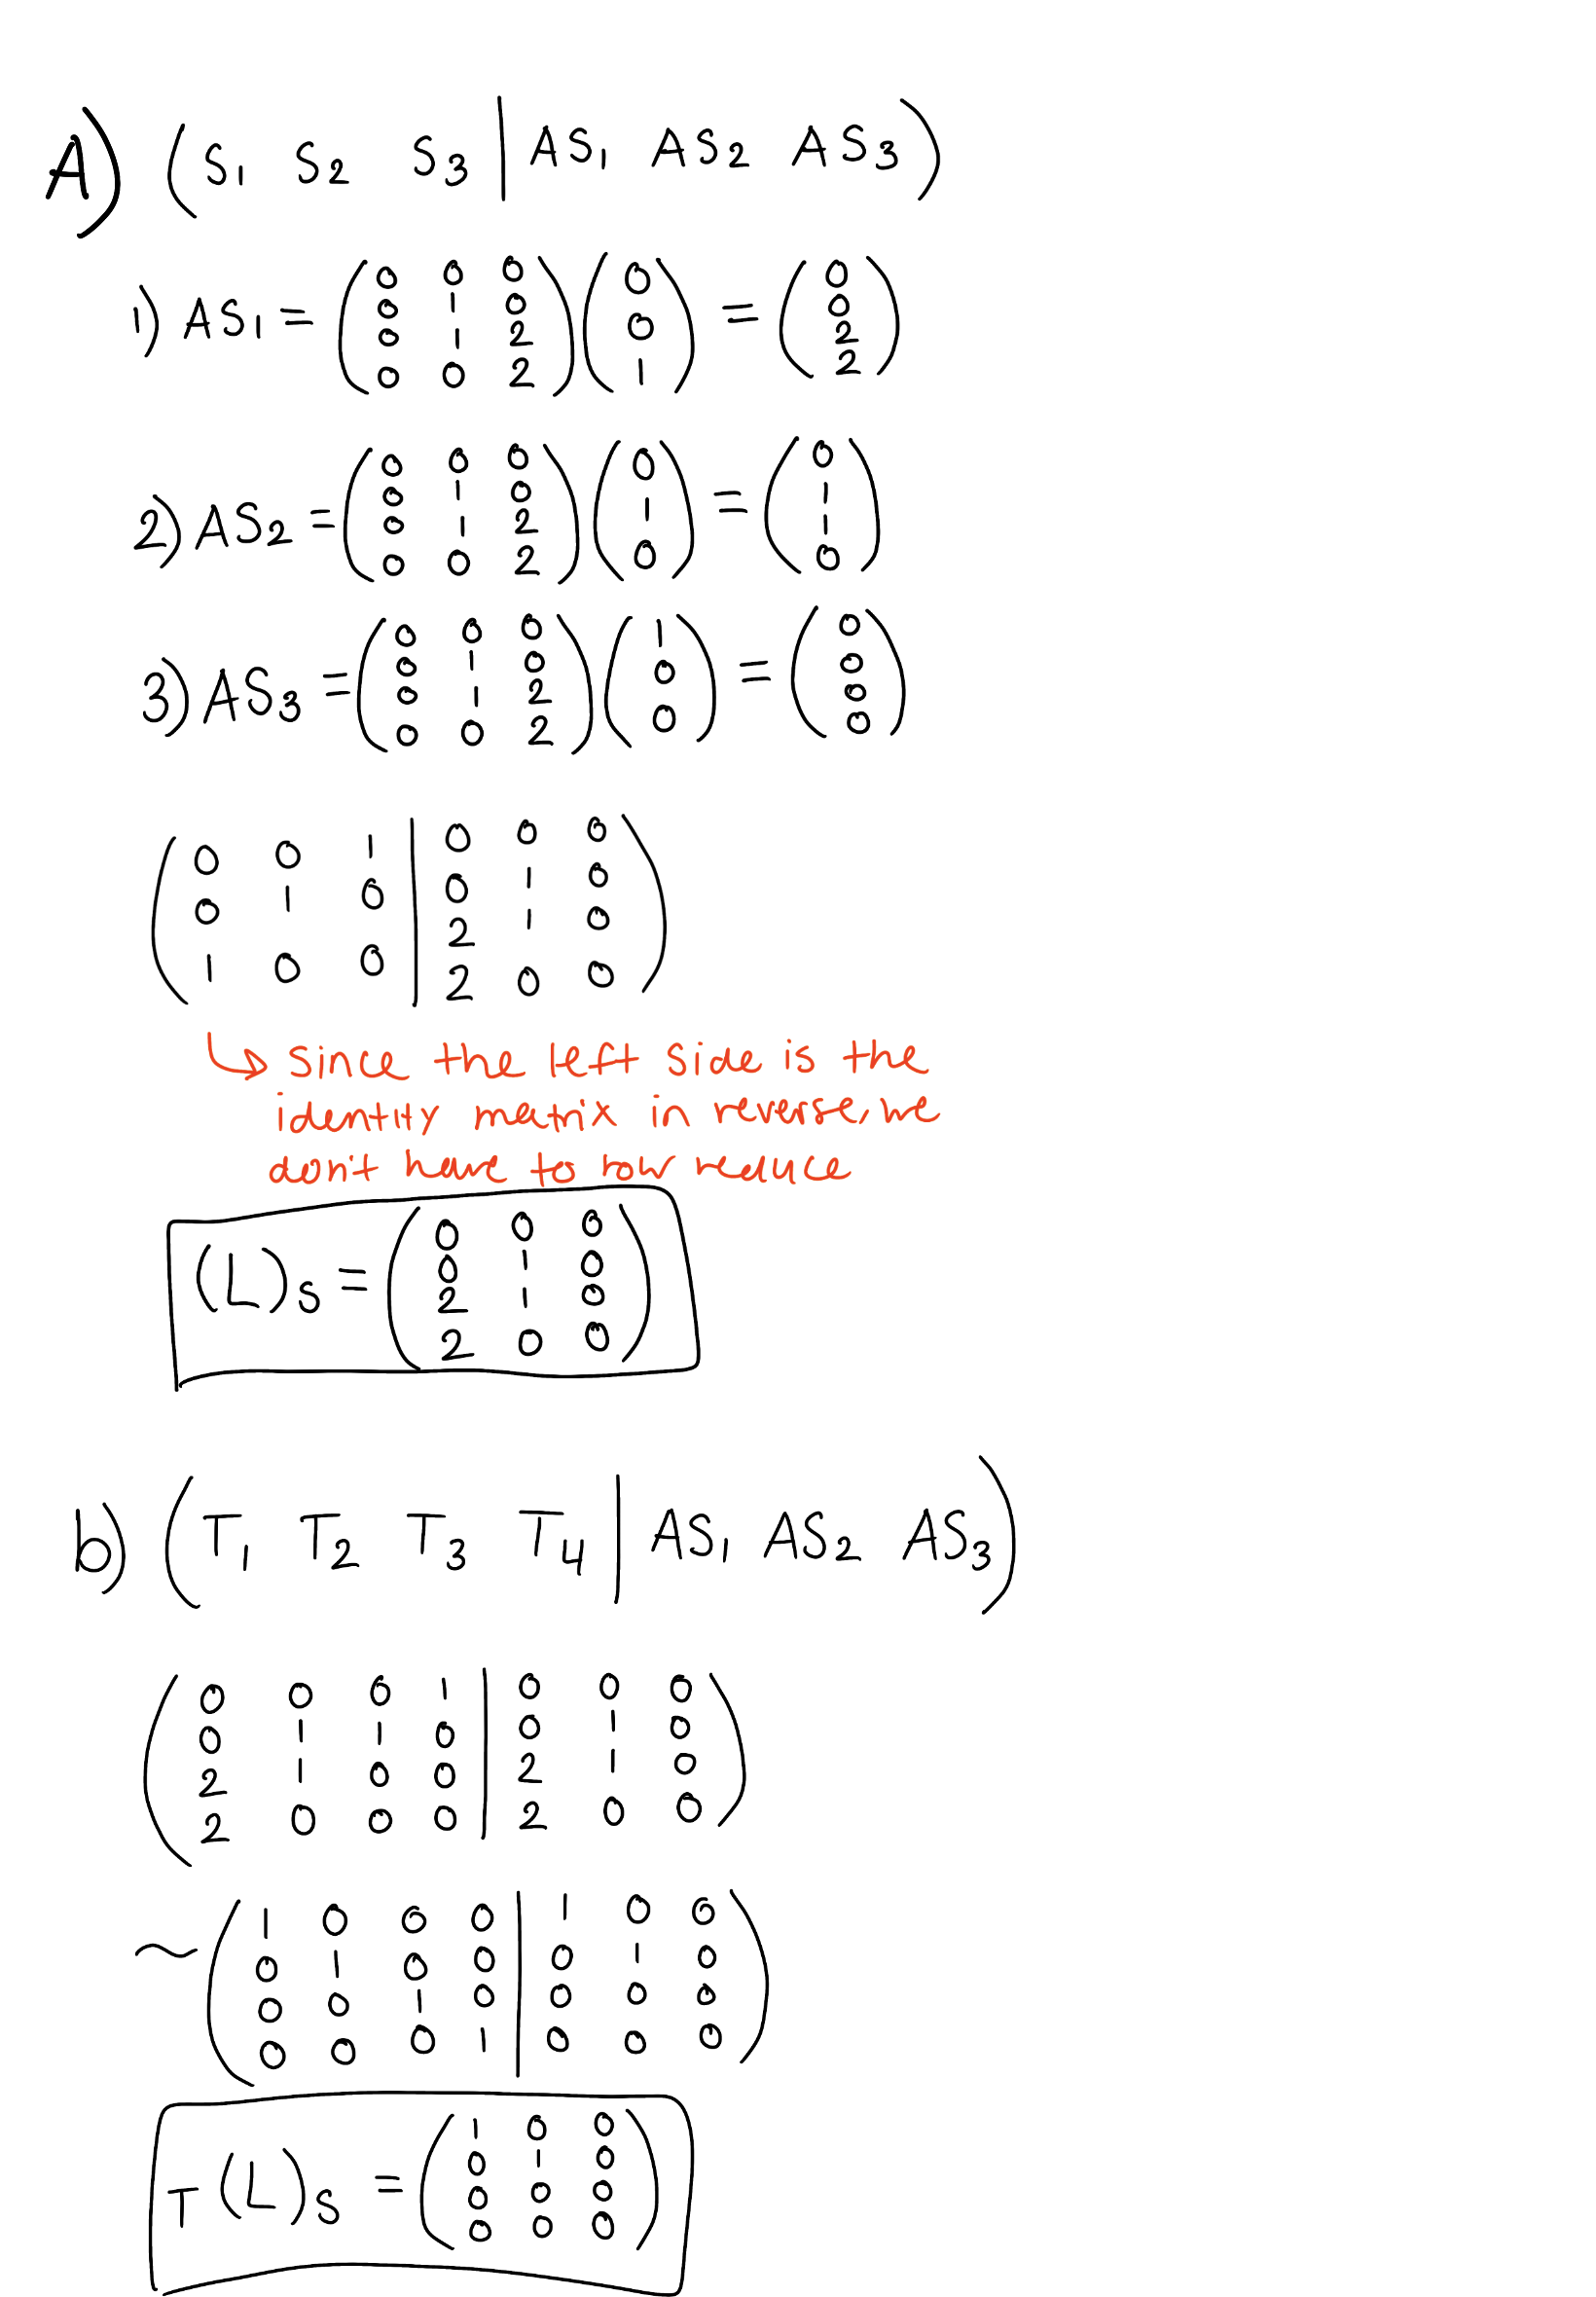 A) ( S1 S2 S3 | AS1 AS2 AS3 )
1) AS1 = ( 0 0 0 ; 0 1 0 ; 0 1 2 ; 0 0 2 ) ( 0 ; 0 ; 1 ) = ( 0 ; 0 ; 2 ; 2 )
2) AS2 = ( 0 0 0 ; 0 1 0 ; 0 1 2 ; 0 0 2 ) ( 0 ; 1 ; 0 ) = ( 0 ; 1 ; 1 ; 0 )
3) AS3 = ( 0 0 0 ; 0 1 0 ; 0 1 2 ; 0 0 2 ) ( 1 ; 0 ; 0 ) = ( 0 ; 0 ; 0 ; 0 )
( 0 0 1 | 0 0 0
0 1 0 | 0 1 0
1 0 0 | 2 1 0
| 2 0 0 )
↳ since the left side is the
identity matrix in reverse, we
don't have to row reduce
(L)S = ( 0 0 0 ; 0 1 0 ; 2 1 0 ; 2 0 0 )
b) ( T1 T2 T3 T4 | AS1 AS2 AS3 )
( 0 0 0 1 | 0 0 0
0 1 1 0 | 0 1 0
2 1 0 0 | 2 1 0
2 0 0 0 | 2 0 0 )
~ ( 1 0 0 0 | 1 0 0
0 1 0 0 | 0 1 0
0 0 1 0 | 0 0 0
0 0 0 1 | 0 0 0 )
T(L)S = ( 1 0 0 ; 0 1 0 ; 0 0 0 ; 0 0 0 )